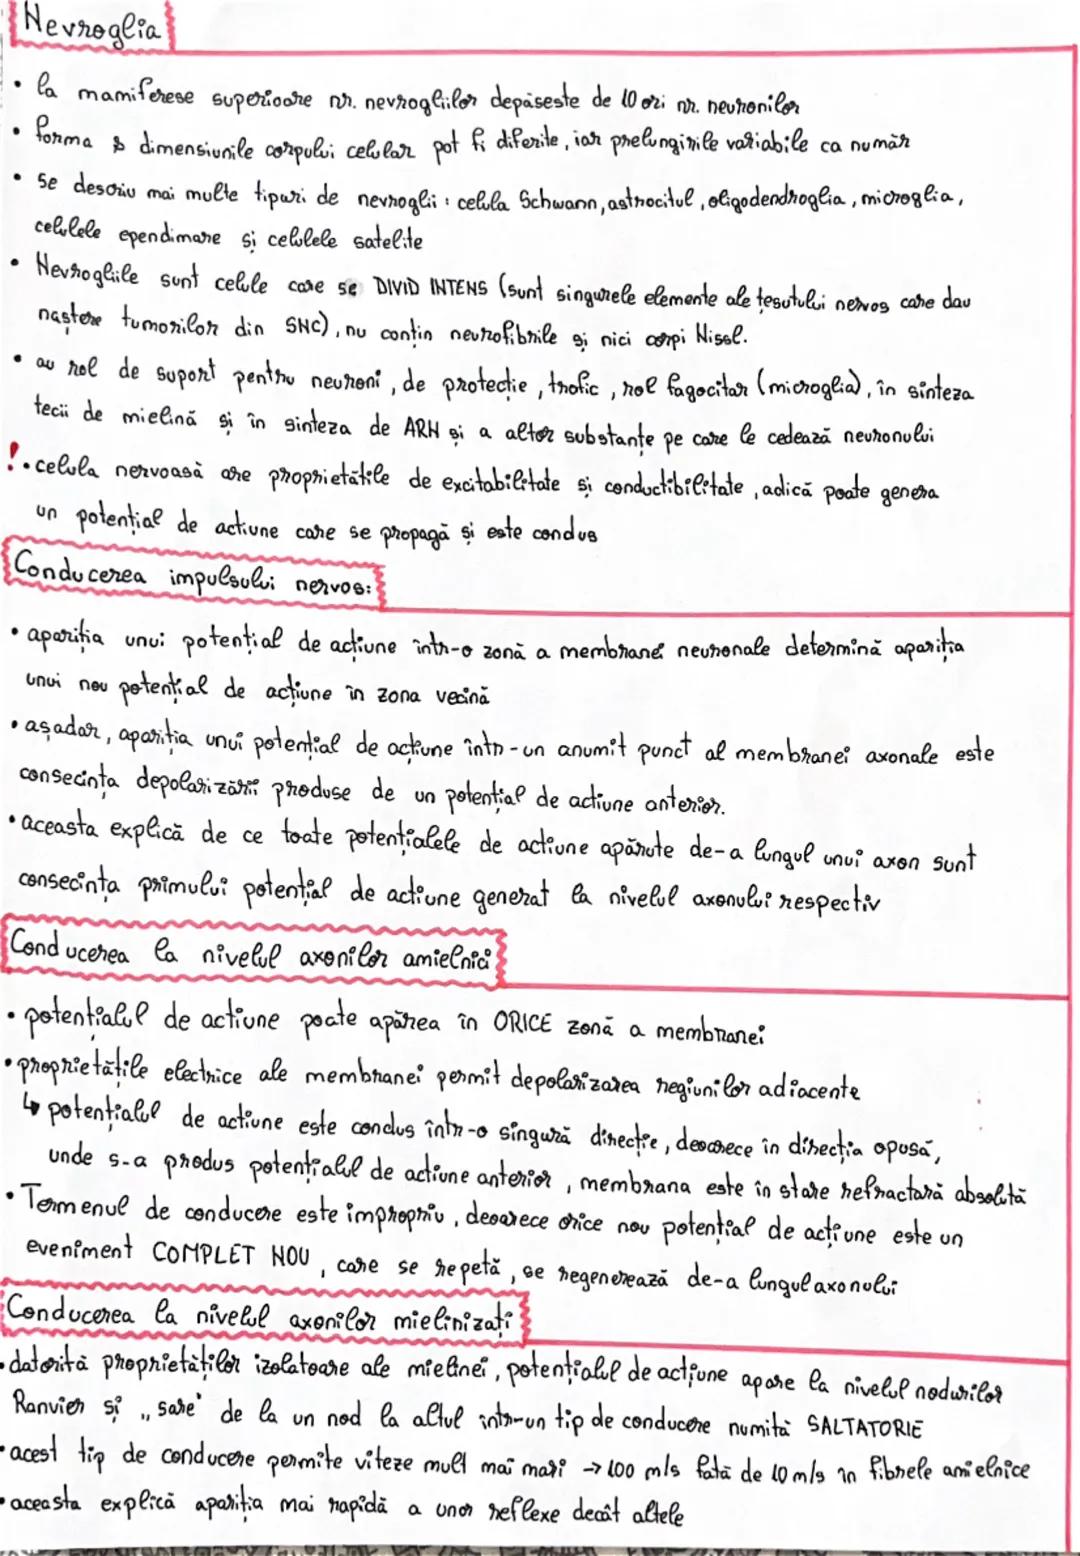 Nevroglia
• la mamiferese superioare nr. nevrogliilor depășeste de 10 ori nr. neuronilor
• forma și dimensiunile corpului celular pot fi diferite, iar prelungirile variabile ca număr
• se descriu mai multe tipuri de nevroglii: celula Schwann, astrocitul, oligodendroglia, microglia,
celulele ependimare și celulele satelite
• Nevrogliile sunt celule care se DIVID INTENS (sunt singurele elemente ale țesutului nervos care dau
naștere tumorilor din SNC), nu conțin neurofibrile și nici corpi Nissl.
• au rol de suport pentru neuroni, de protecție, trofic, rol fagocitar (microglia), în sinteza
tecii de mielină și în sinteza de ARN și a altor substanțe pe care le cedează neuronului
! • celula nervoasă are proprietățile de excitabilitate și conductibilitate, adică poate genera
un potențial de acțiune care se propagă și este condus
Conducerea impulsului nervos:
• apariția unui potențial de acțiune într-o zonă a membranei neuronale determină apariția
unui nou potențial de acțiune în zona vecină
• așadar, apariția unui potențial de acțiune într-un anumit punct al membranei axonale este
consecința depolarizării produse de un potențial de actiune anterior.
• aceasta explică de ce toate potențialele de actiune apărute de-a lungul unui axon sunt
consecința primului potențial de actiune generat la nivelul axonului respectiv
Conducerea la nivelul axonilor amielnici
• potentialul de actiune poate apărea în ORICE zonă a membranei
• proprietățile electrice ale membranei permit depolarizarea regiunilor adiacente
↳ potențialul de actiune este condus într-o singură direcție, deoarece în direcția opusă,
unde s-a produs potențialul de actiune anterior, membrana este în stare refractară absolută
• Termenul de conducere este impropriu, deoarece orice nou potențial de acțiune este un
eveniment COMPLET NOU, care se repetă, se regenerează de-a lungul axonului
Conducerea la nivelul axonilor mielinizați
• datorită proprietăților izolatoare ale mielinei, potențialul de acțiune apare la nivelul nodurilor
Ranvier și „sare" de la un nod la altul într-un tip de conducere numită SALTATORIE
• acest tip de conducere permite viteze mult mai mari → 100 m/s față de 10 m/s în fibrele amielnice
• aceasta explică apariția mai rapidă a unor reflexe decât altele